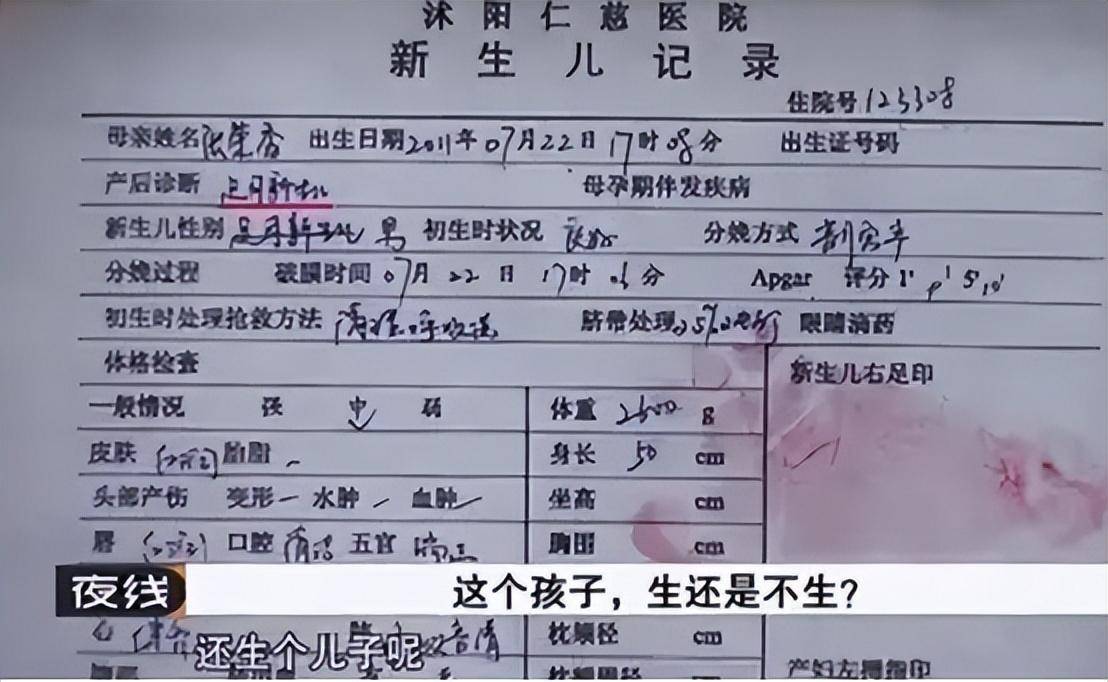 沭阳仁慈医院
新生儿记录
住院号 123308
母亲姓名 张荣香 出生日期 2011年07月22日17时08分 出生证号码
产后诊断 足月新生儿 母孕期伴发疾病
新生儿性别 足月新生儿 男 初生时状况 良好 分娩方式 剖宫产
分娩过程 破膜时间 07月22日17时 分 Apgar 评分1' 5'
初生时处理抢救方法 清理呼吸道 脐带处理 眼睛滴药
体格检查 新生儿右足印
一般情况 强 中 弱 体重 2500 g
皮肤 (红润) 胎脂 身长 50 cm
头部产伤 变形 水肿 血肿 坐高 cm
唇 (红润) 口腔 清洁 五官 端正 胸围 cm
夜线 这个孩子，生还是不生？
音清 枕颏径 cm
还生个儿子呢
产妇左拇指印